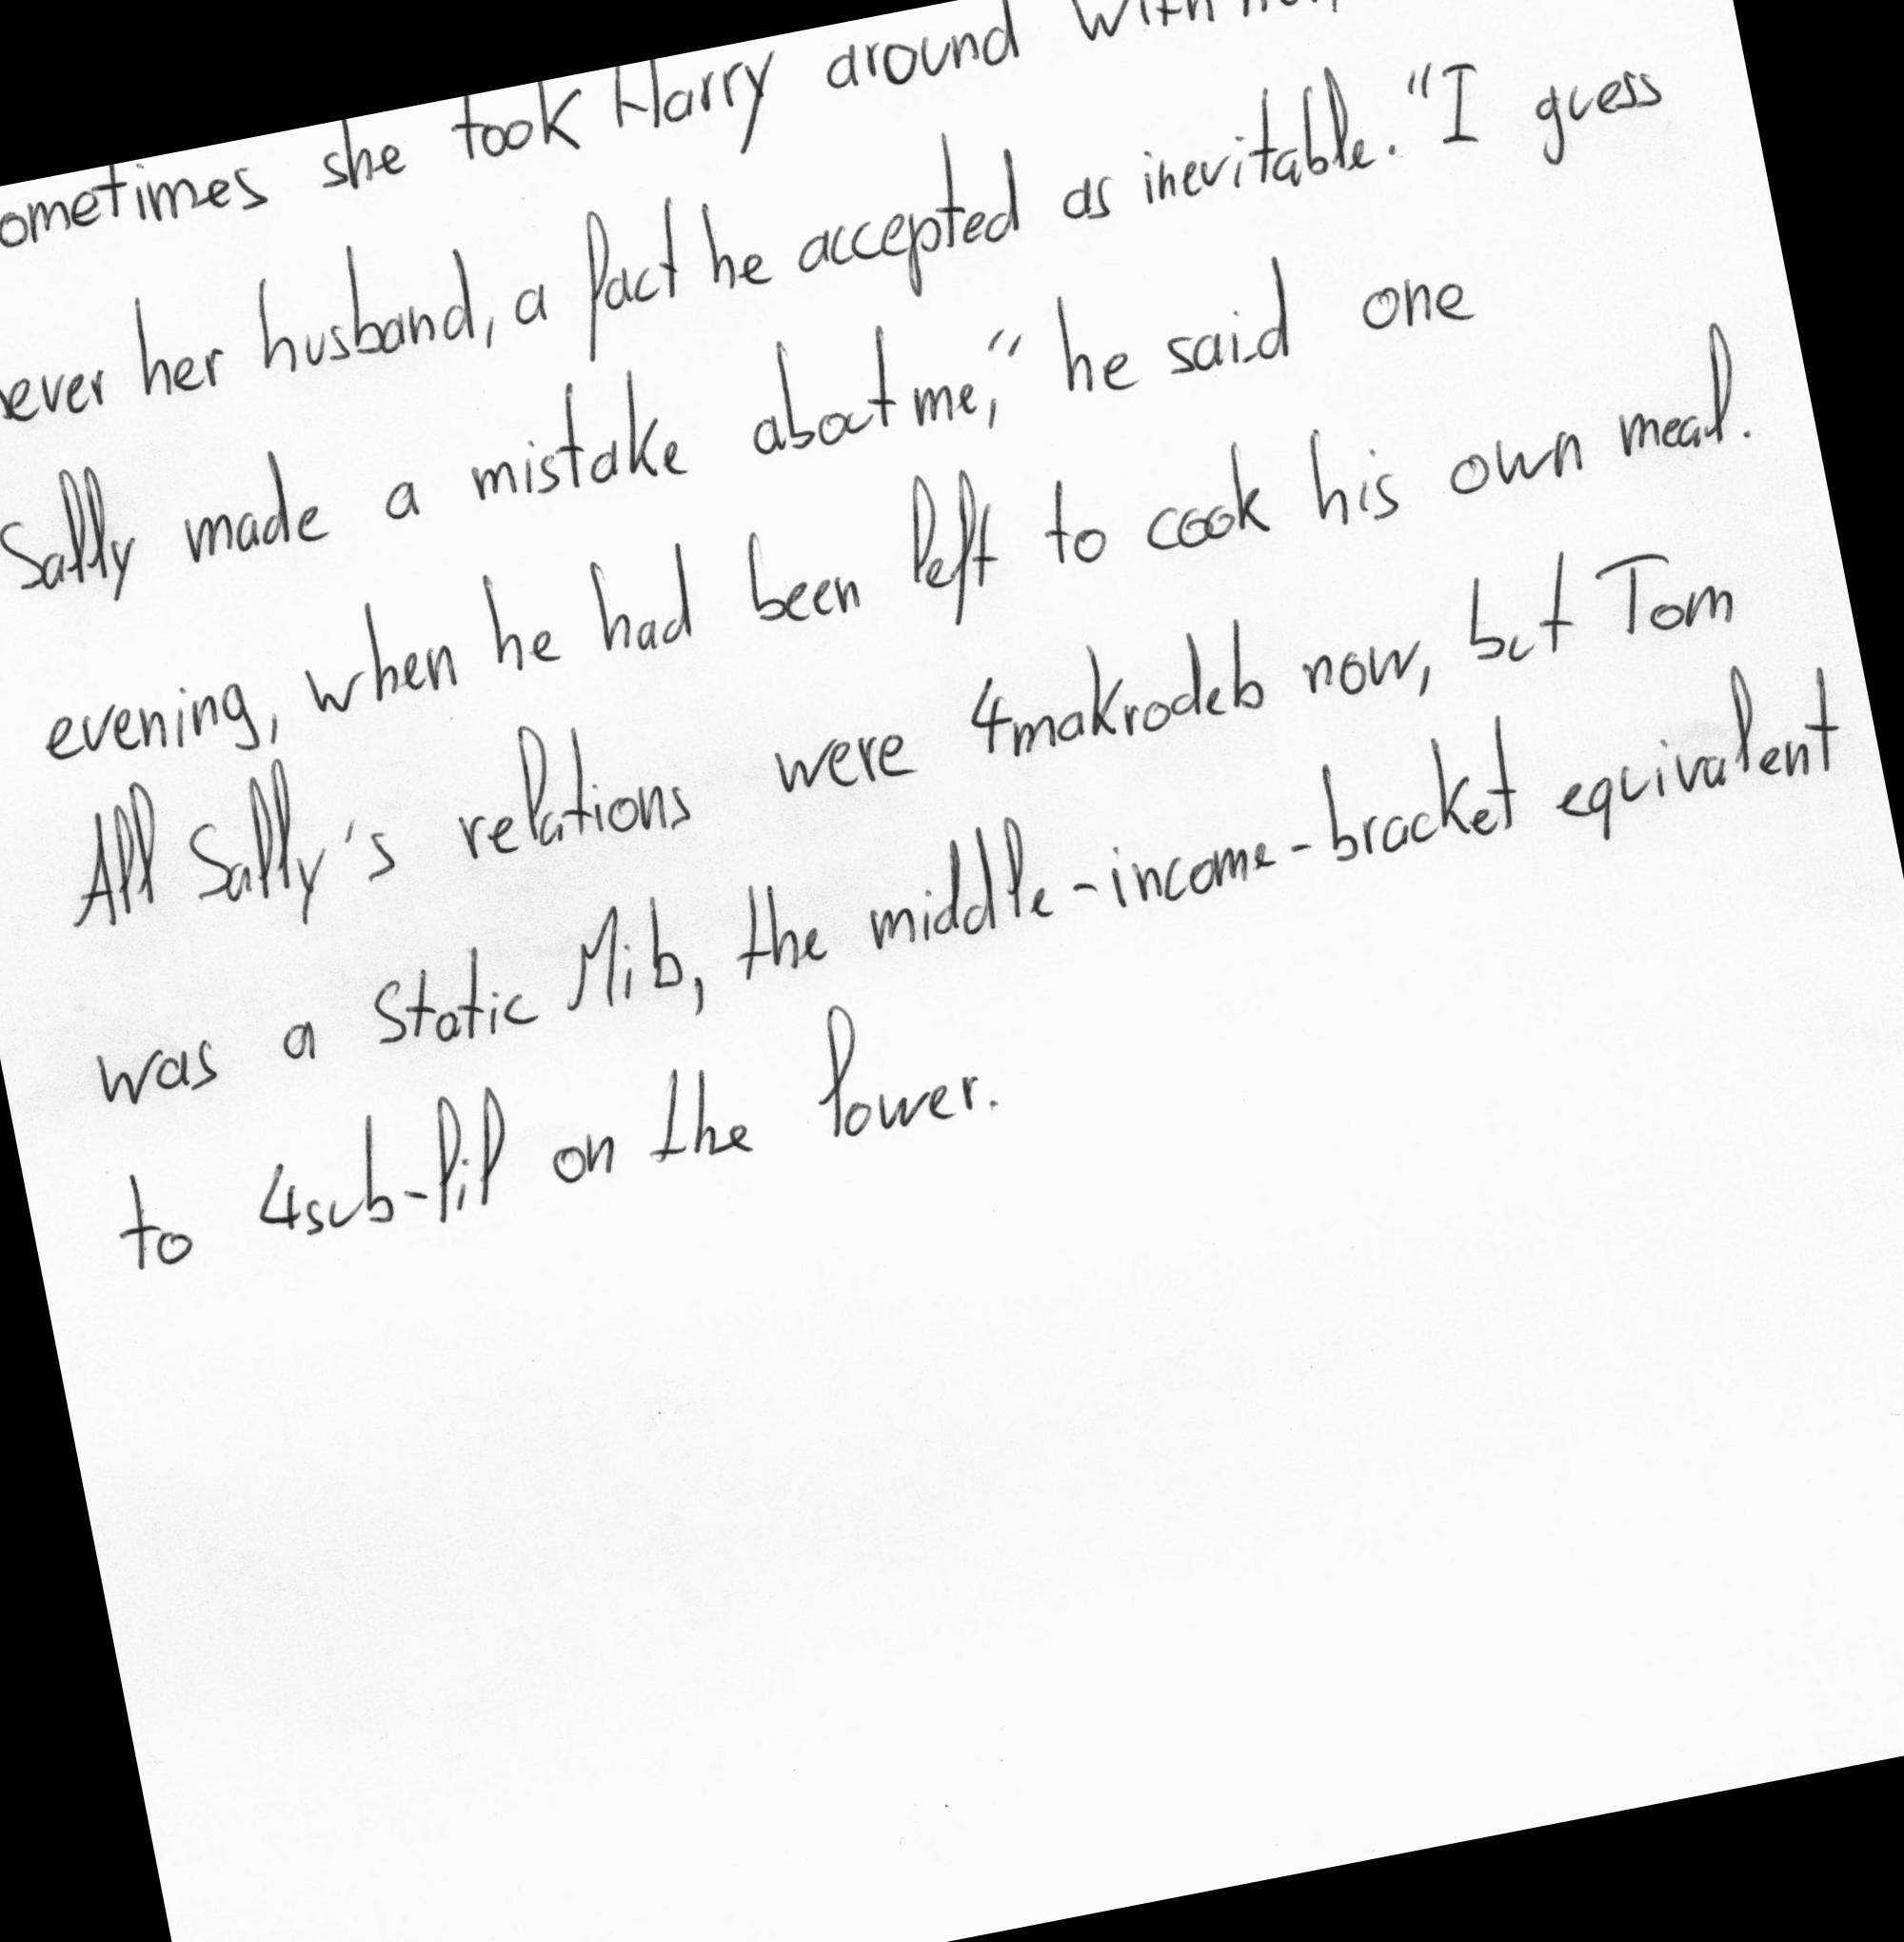 she took Harry around
her husband, a fact he accepted as inevitable. "I guess
Sally made a mistake about me," he said one
evening, when he had been left to cook his own meal.
All Sally's relations were 4makrodeb now, but Tom
was a Static Mib, the middle-income-bracket equivalent
to 4sub-lil on the lower.